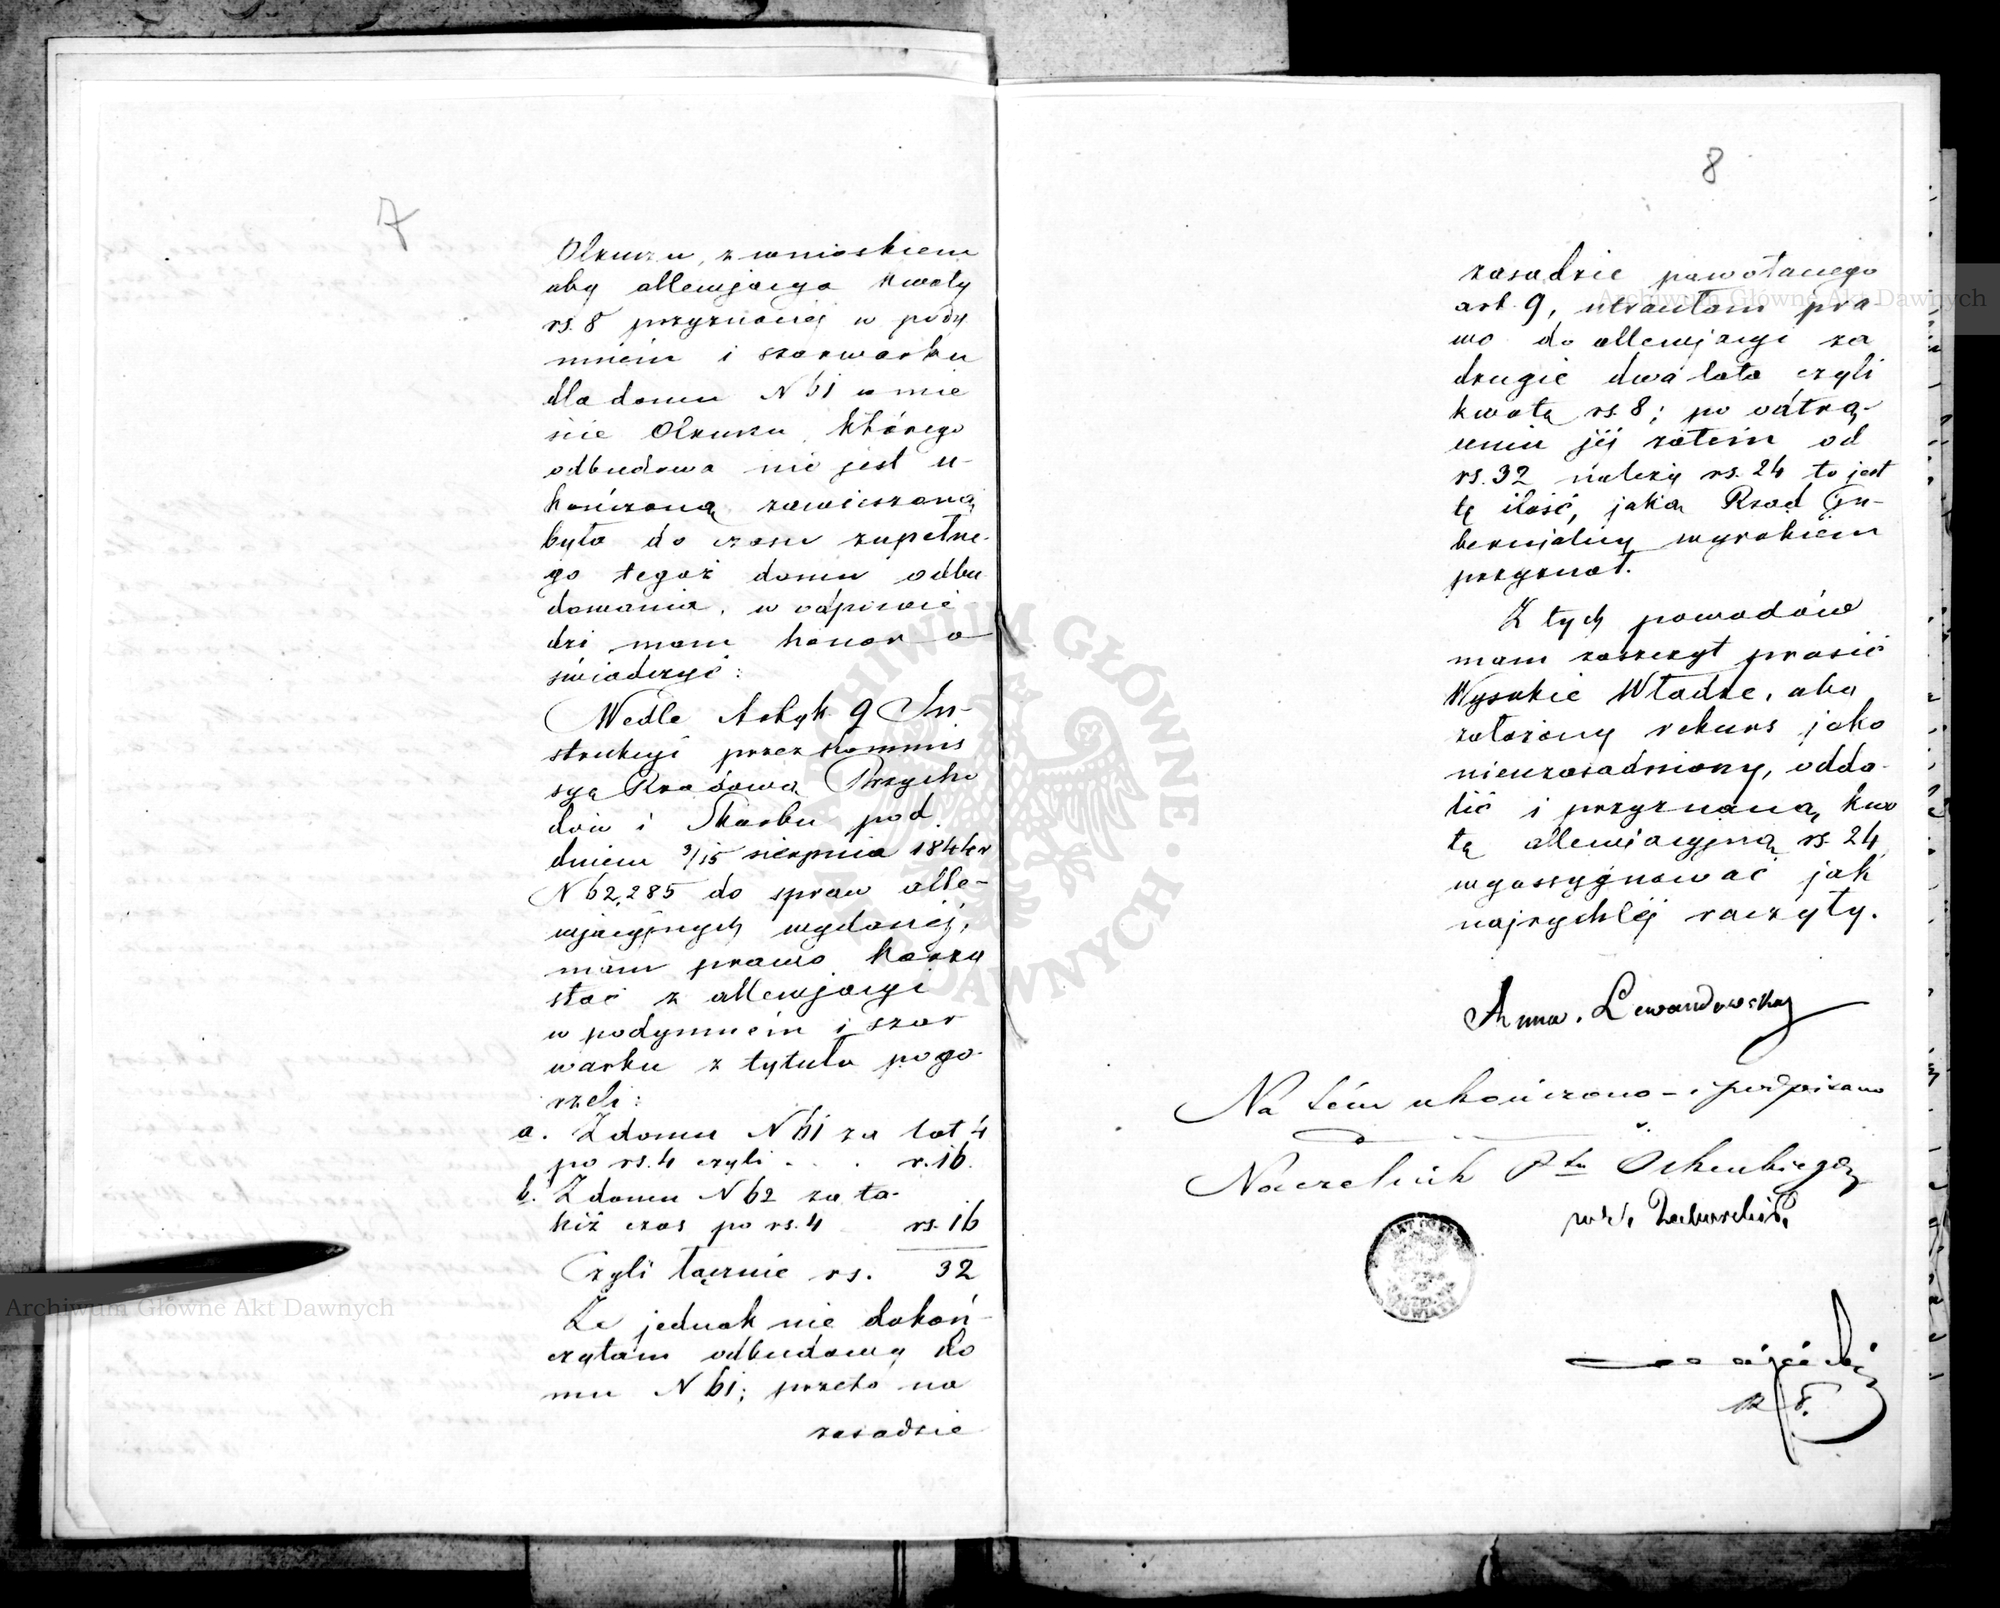 7
Olkuszu, z wnioskiem
aby allewjacya kwoty
rs. 8 przyznanej w pody
mnem i szarwarku
dla domu N 61 w mie
ście Olkuszu, którego
odbudowa nie jest u-
kończoną zawieszoną
była do czasu zupełne-
go tegoż domu odbu
dowania, w odpowie
dzi mam honor o
świadczyć:
Wedle Artyk. 9 In-
strukcyi przez Kommis
syą Rządową Przycho
dów i Skarbu pod
dniem 3/15 sierpnia 1844 r
N 62,285 do spraw alle-
wjacyjnych wydanej,
mam prawo korzy
stać z allewjacyi
w podymnem i szar
warku z tytułu pogo-
rzeli:
a. Z domu N 61 za lat 4
po rs. 4 czyli . . . r. 16.
b. Z domu N 62 za ta-
kiż czas po rs. 4 rs. 16
Czyli łącznie rs. 32
Że jednak nie dokoń-
czyłam odbudowy do
mu N 61; przeto na
zasadzie
8
zasadzie powołanego
art. 9, utraciłam pra
wo do allewjacyi za
drugie dwa lata czyli
kwotę rs. 8; po odtrą-
ceniu jej zatem od
rs. 32 należy rs. 24 to jest
tę ilość, jaką Rząd Gu-
bernjalny wyrokiem
przyznał.
Z tych powodów
mam zaszczyt prosić
Wysokie Władze, aby
założony rekurs jako
nieuzasadniony, odda-
lić i przyznaną kwo
tę allewiacyjną rs. 24
wyassygnować jak
najrychlej raczyły.
Anna Lewandowska
Na tém ukończono i podpisano
Naczelnik Ptu Olkuskiego
Archiwum Główne Akt Dawnych
Archiwum Główne Akt Dawnych
ARCHIWUM GŁÓWNE AKT DAWNYCH